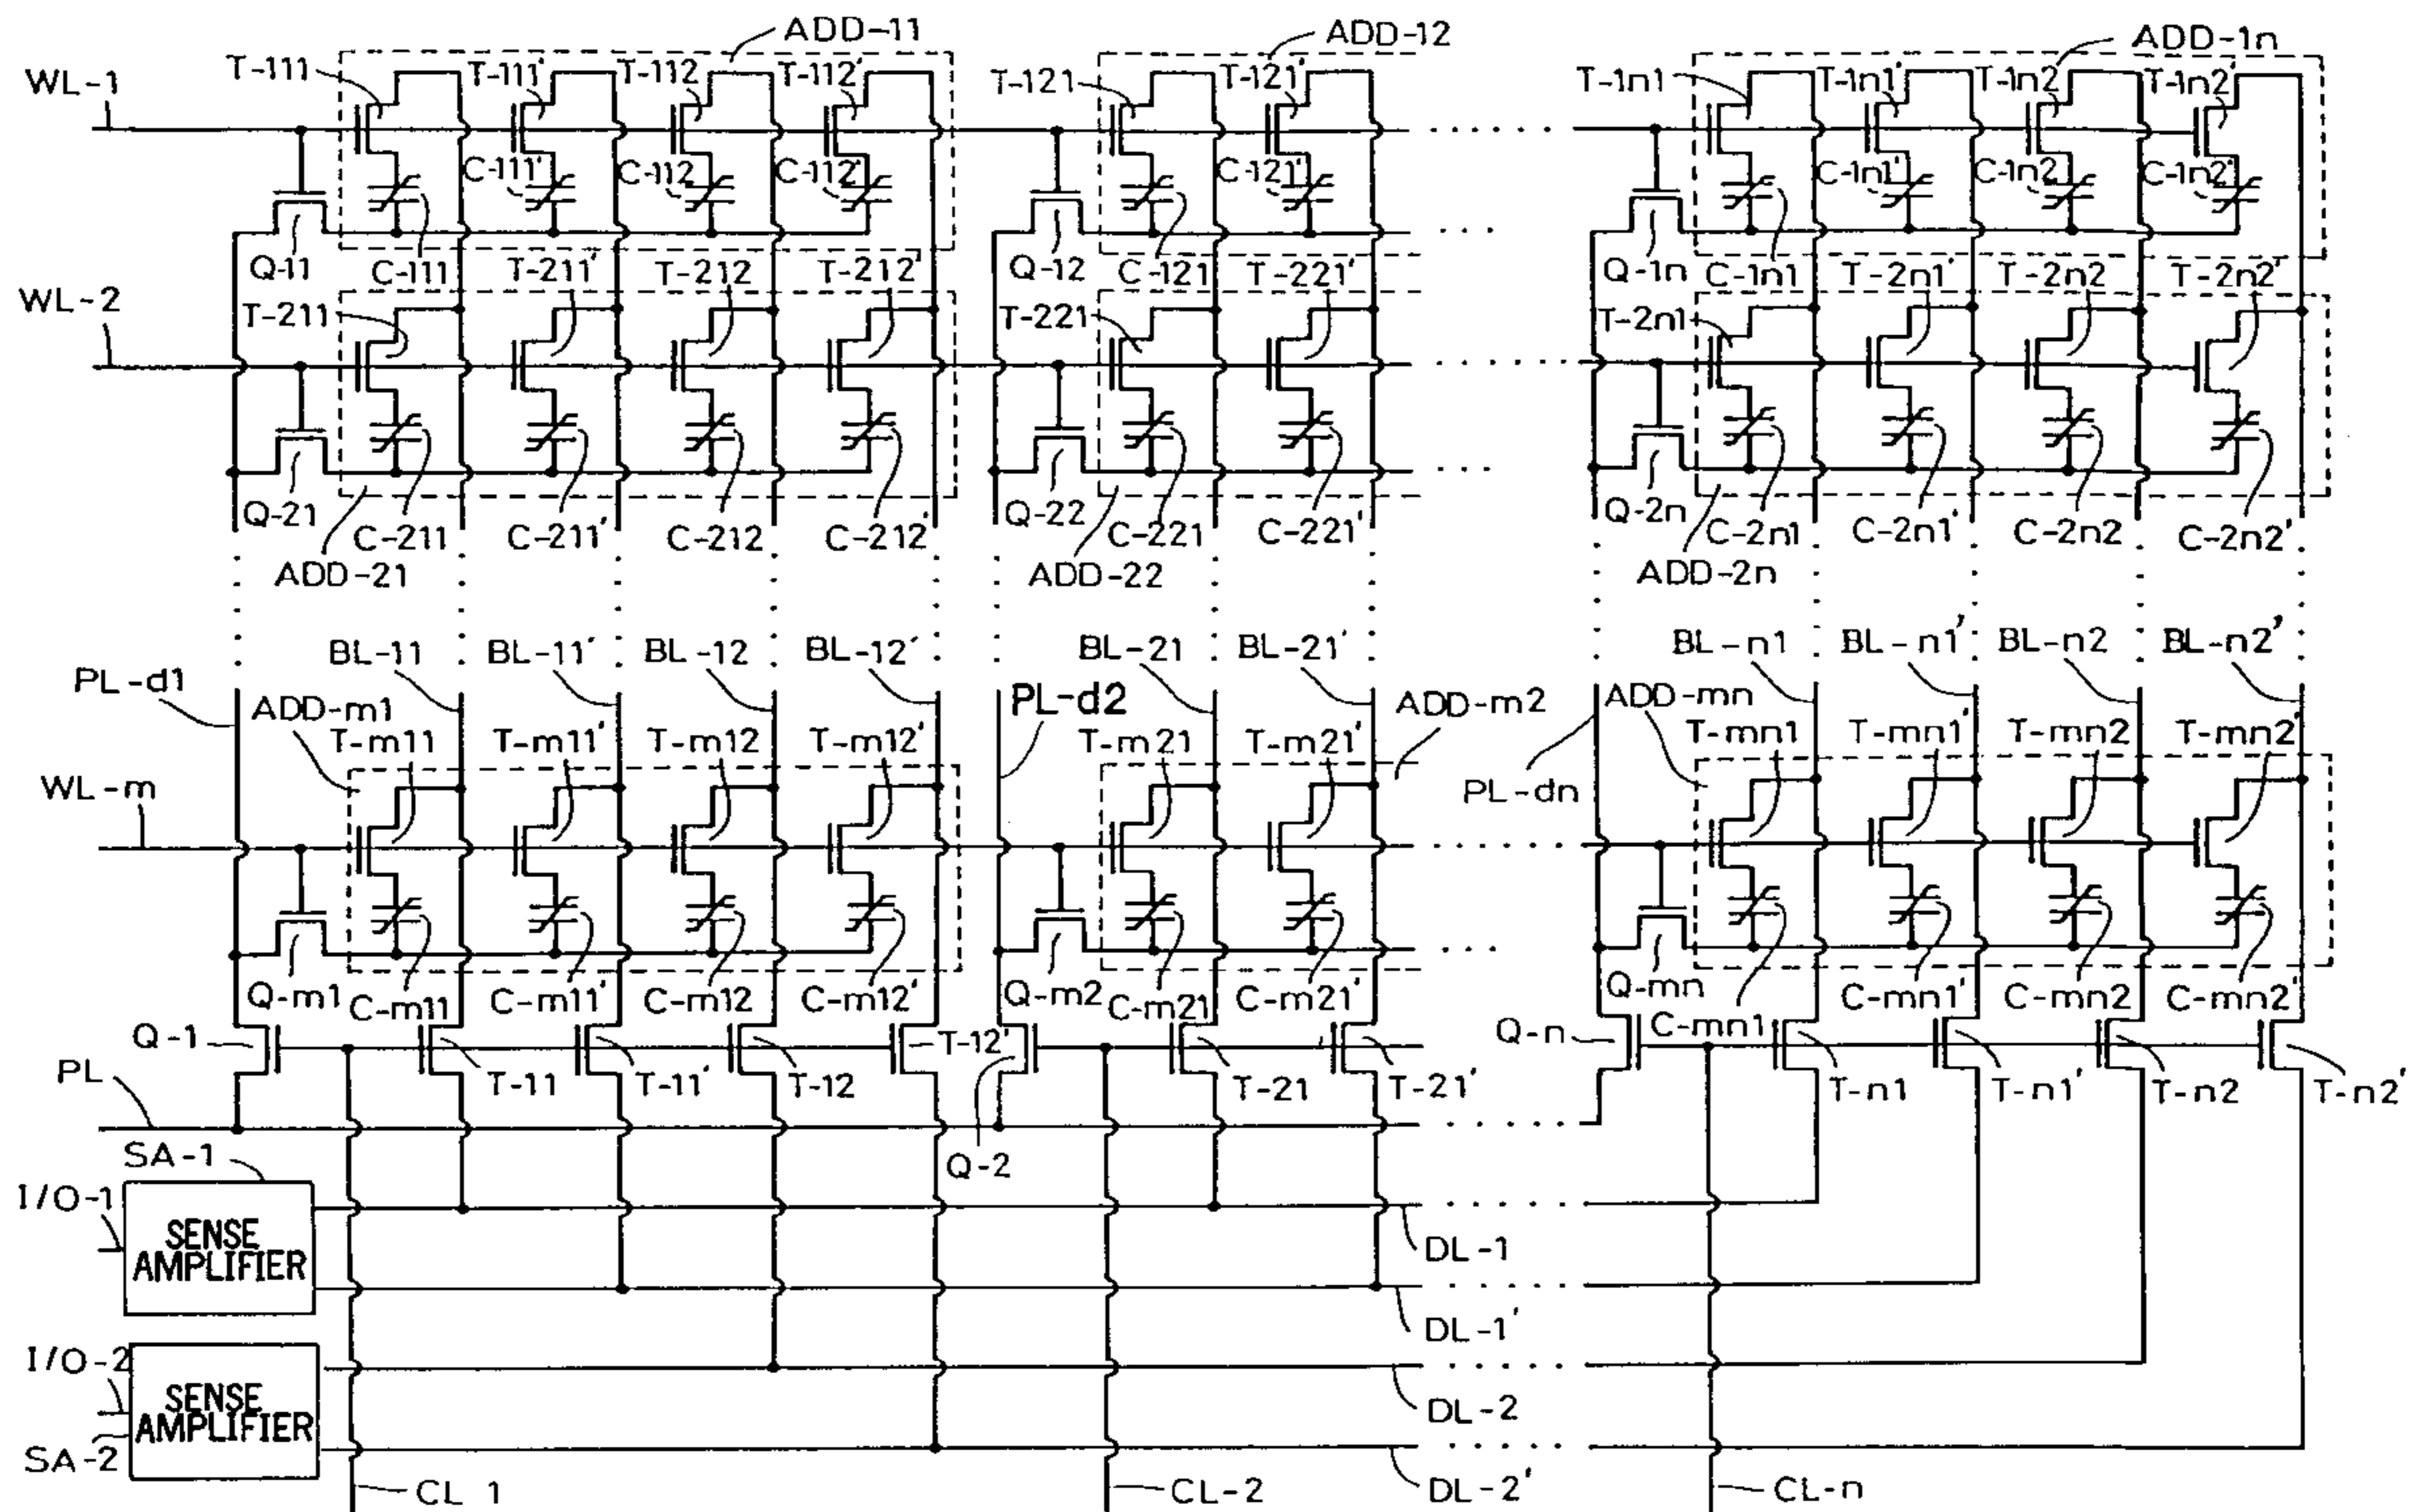 ADD-11
ADD-12
ADD-1n
WL-1
T-111
T-111'
T-112
T-112'
T-121
T-121'
T-1n1
T-1n1'
T-1n2
T-1n2'
C-111'
C-112
C-112'
C-121'
C-1n1'
C-1n2
C-1n2'
Q-11
C-111
T-211'
T-212
T-212'
Q-12
C-121
T-221'
Q-1n
C-1n1
T-2n1'
T-2n2
T-2n2'
WL-2
T-211
T-221
T-2n1
Q-21
C-211
C-211'
C-212
C-212'
Q-22
C-221
C-221'
Q-2n
C-2n1
C-2n1'
C-2n2
C-2n2'
ADD-21
ADD-22
ADD-2n
PL-d1
BL-11
BL-11'
BL-12
BL-12'
BL-21
BL-21'
BL-n1
BL-n1'
BL-n2
BL-n2'
ADD-m1
PL-d2
ADD-m2
ADD-mn
T-m11
T-m11'
T-m12
T-m12'
T-m21
T-m21'
T-mn1
T-mn1'
T-mn2
T-mn2'
WL-m
PL-dn
Q-m1
C-m11
C-m11'
C-m12
C-m12'
Q-m2
C-m21
C-m21'
Q-mn
C-mn1
C-mn1'
C-mn2
C-mn2'
Q-1
T-12'
Q-n
PL
T-11
T-11'
T-12
T-21
T-21'
T-n1
T-n1'
T-n2
T-n2'
SA-1
Q-2
I/O-1
SENSE
AMPLIFIER
DL-1
DL-1'
I/O-2
SENSE
AMPLIFIER
DL-2
SA-2
DL-2'
CL 1
CL-2
CL-n